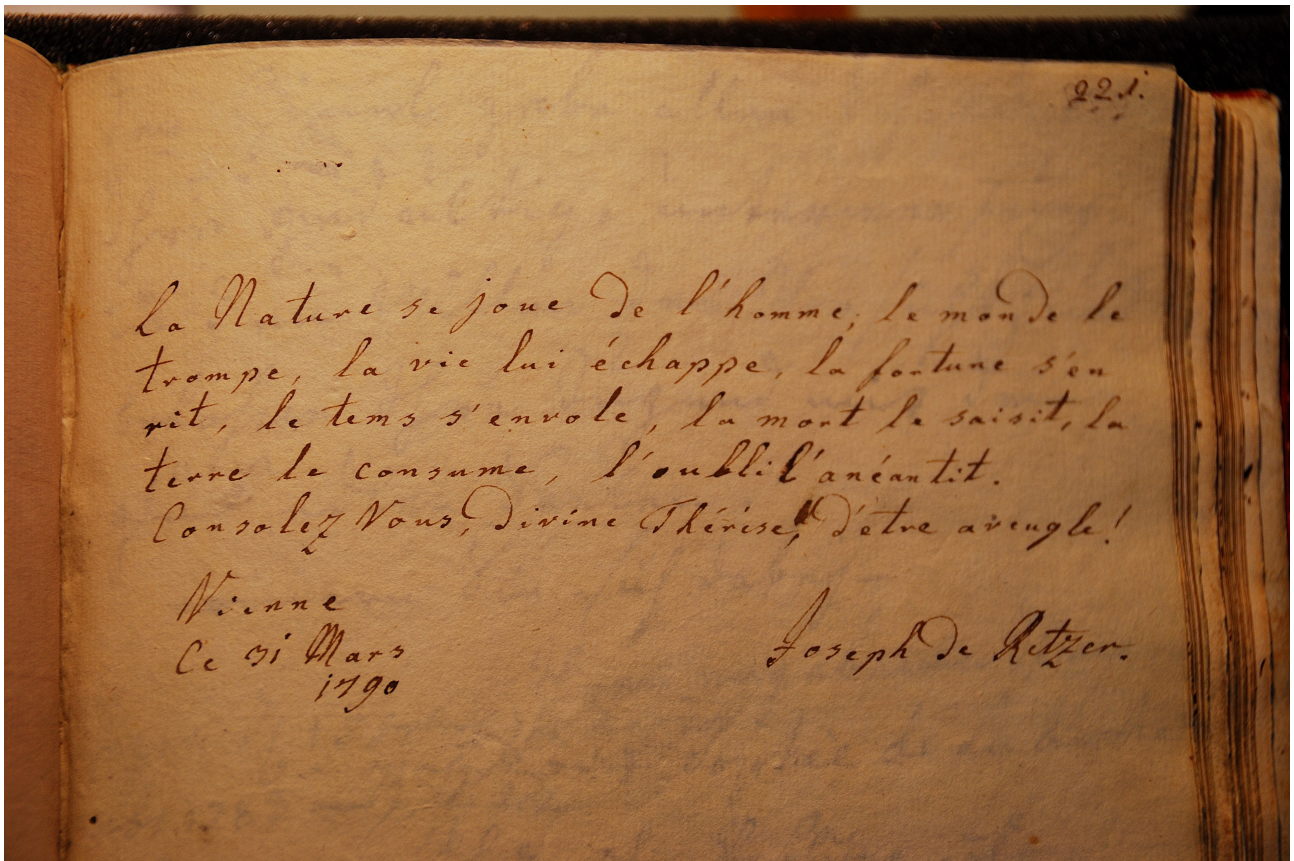 221.
La Nature se joue de l'homme, le monde le
trompe, la vie lui échappe, la fortune s'en
rit, le tems s'envole, la mort le saisit, la
terre le consume, l'oubli l'anéantit.
Consolez Vous, divine Thérèse, d'etre aveugle!
Vienne
Ce 31 Mars
1790
Joseph de Retzer.